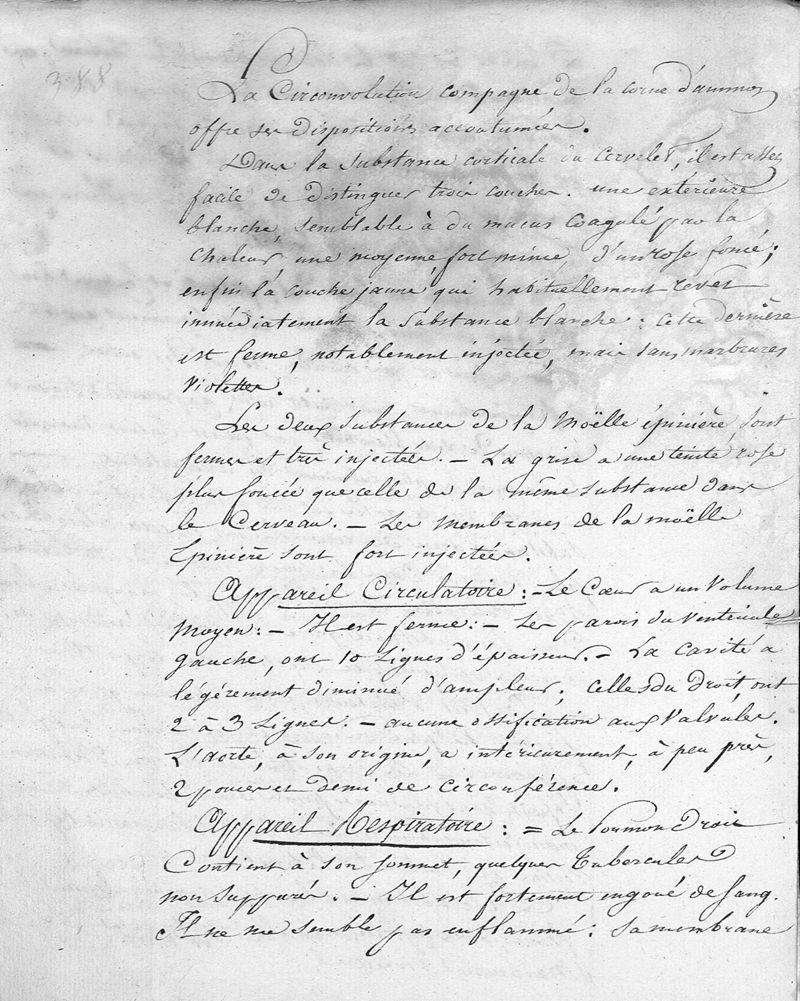 388
La Circonvolution compagne de la corne d'ammon
offre ses dispositions accoutumées.
Dans la substance corticale du Cervelet, il est assez
facile de distinguer trois couches. une extérieure
blanche, semblable à du mucus coagulé par la
chaleur, une moyenne, fort mince, d'un rose foncé;
enfin la couche jaune, qui habituellement revêt
immédiatement la substance blanche: cette dernière
est ferme, notablement injectée, mais sans marbrures
violettes.
Les deux substances de la Moëlle épinière, sont
fermes et très injectées. – La grise a une teinte rose
plus foncée que celle de la même substance dans
le Cerveau. – Les membranes de la moëlle
Epinière sont fort injectées.
Appareil Circulatoire: – Le Cœur a un Volume
Moyen: – Il est ferme: – Les parois du Ventricule
gauche, ont 10 Lignes d'épaisseur. – La cavité a
légérement diminué d'ampleur; Celles du Droit, ont
2 à 3 Lignes. – aucune ossification aux Valvules.
L'aorte, à son origine, a intérieurement, à peu près,
2 pouces et demi de circonférence.
Appareil Respiratoire: = Le Poumon Droit
Contient à son sommet, quelques Tubercules
non suppurés. – Il est fortement engoué de sang.
Il ne me semble pas enflammé: sa membrane